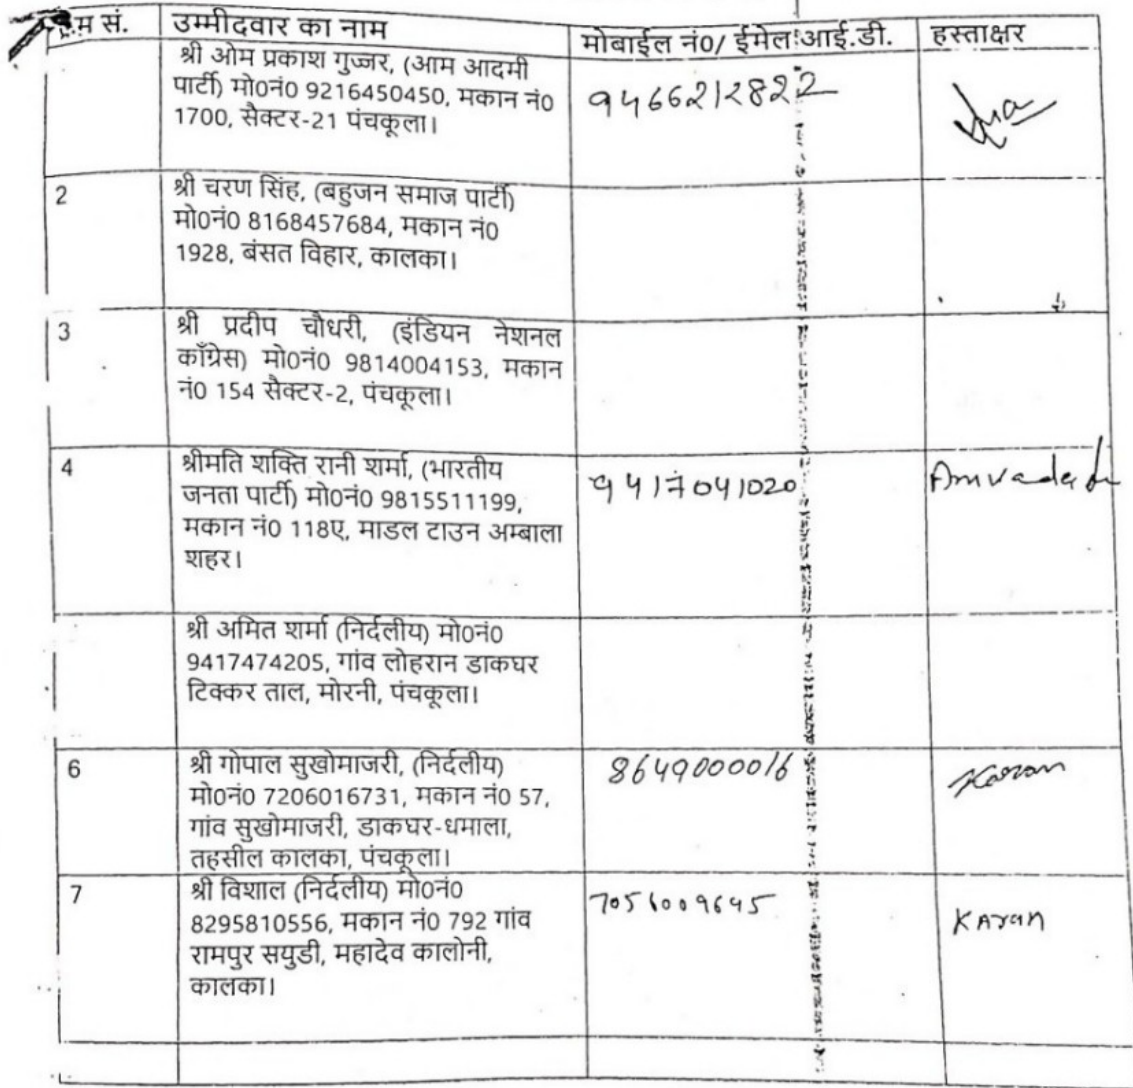 म सं. उम्मीदवार का नाम मोबाईल नं0/ ईमेल आई.डी. हस्ताक्षर
श्री ओम प्रकाश गुज्जर, (आम आदमी
पार्टी) मो0नं0 9216450450, मकान नं0
1700, सैक्टर-21 पंचकूला।
9466212822
2 श्री चरण सिंह, (बहुजन समाज पार्टी)
मो0नं0 8168457684, मकान नं0
1928, बंसत विहार, कालका।
3 श्री प्रदीप चौधरी, (इंडियन नेशनल
काँग्रेस) मो0नं0 9814004153, मकान
नं0 154 सैक्टर-2, पंचकूला।
4 श्रीमति शक्ति रानी शर्मा, (भारतीय
जनता पार्टी) मो0नं0 9815511199,
मकान नं0 118ए, माडल टाउन अम्बाला
शहर।
9417041020
श्री अमित शर्मा (निर्दलीय) मो0नं0
9417474205, गांव लोहरान डाकघर
टिक्कर ताल, मोरनी, पंचकूला।
6 श्री गोपाल सुखोमाजरी, (निर्दलीय)
मो0नं0 7206016731, मकान नं0 57,
गांव सुखोमाजरी, डाकघर-धमाला,
तहसील कालका, पंचकूला।
8649000016 Karan
7 श्री विशाल (निर्दलीय) मो0नं0
8295810556, मकान नं0 792 गांव
रामपुर सयुडी, महादेव कालोनी,
कालका।
7056009645 Karan